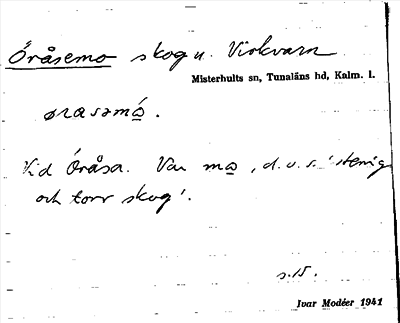 Öråsemo skog u. Virkvarn
Misterhults sn, Tunaläns hd, Kalm. l.
øræsəmå.
Vid Öråsa. Var mo, d.v.s. 'stenig
och torr skog'.
s. 15.
Ivar Modéer 1941